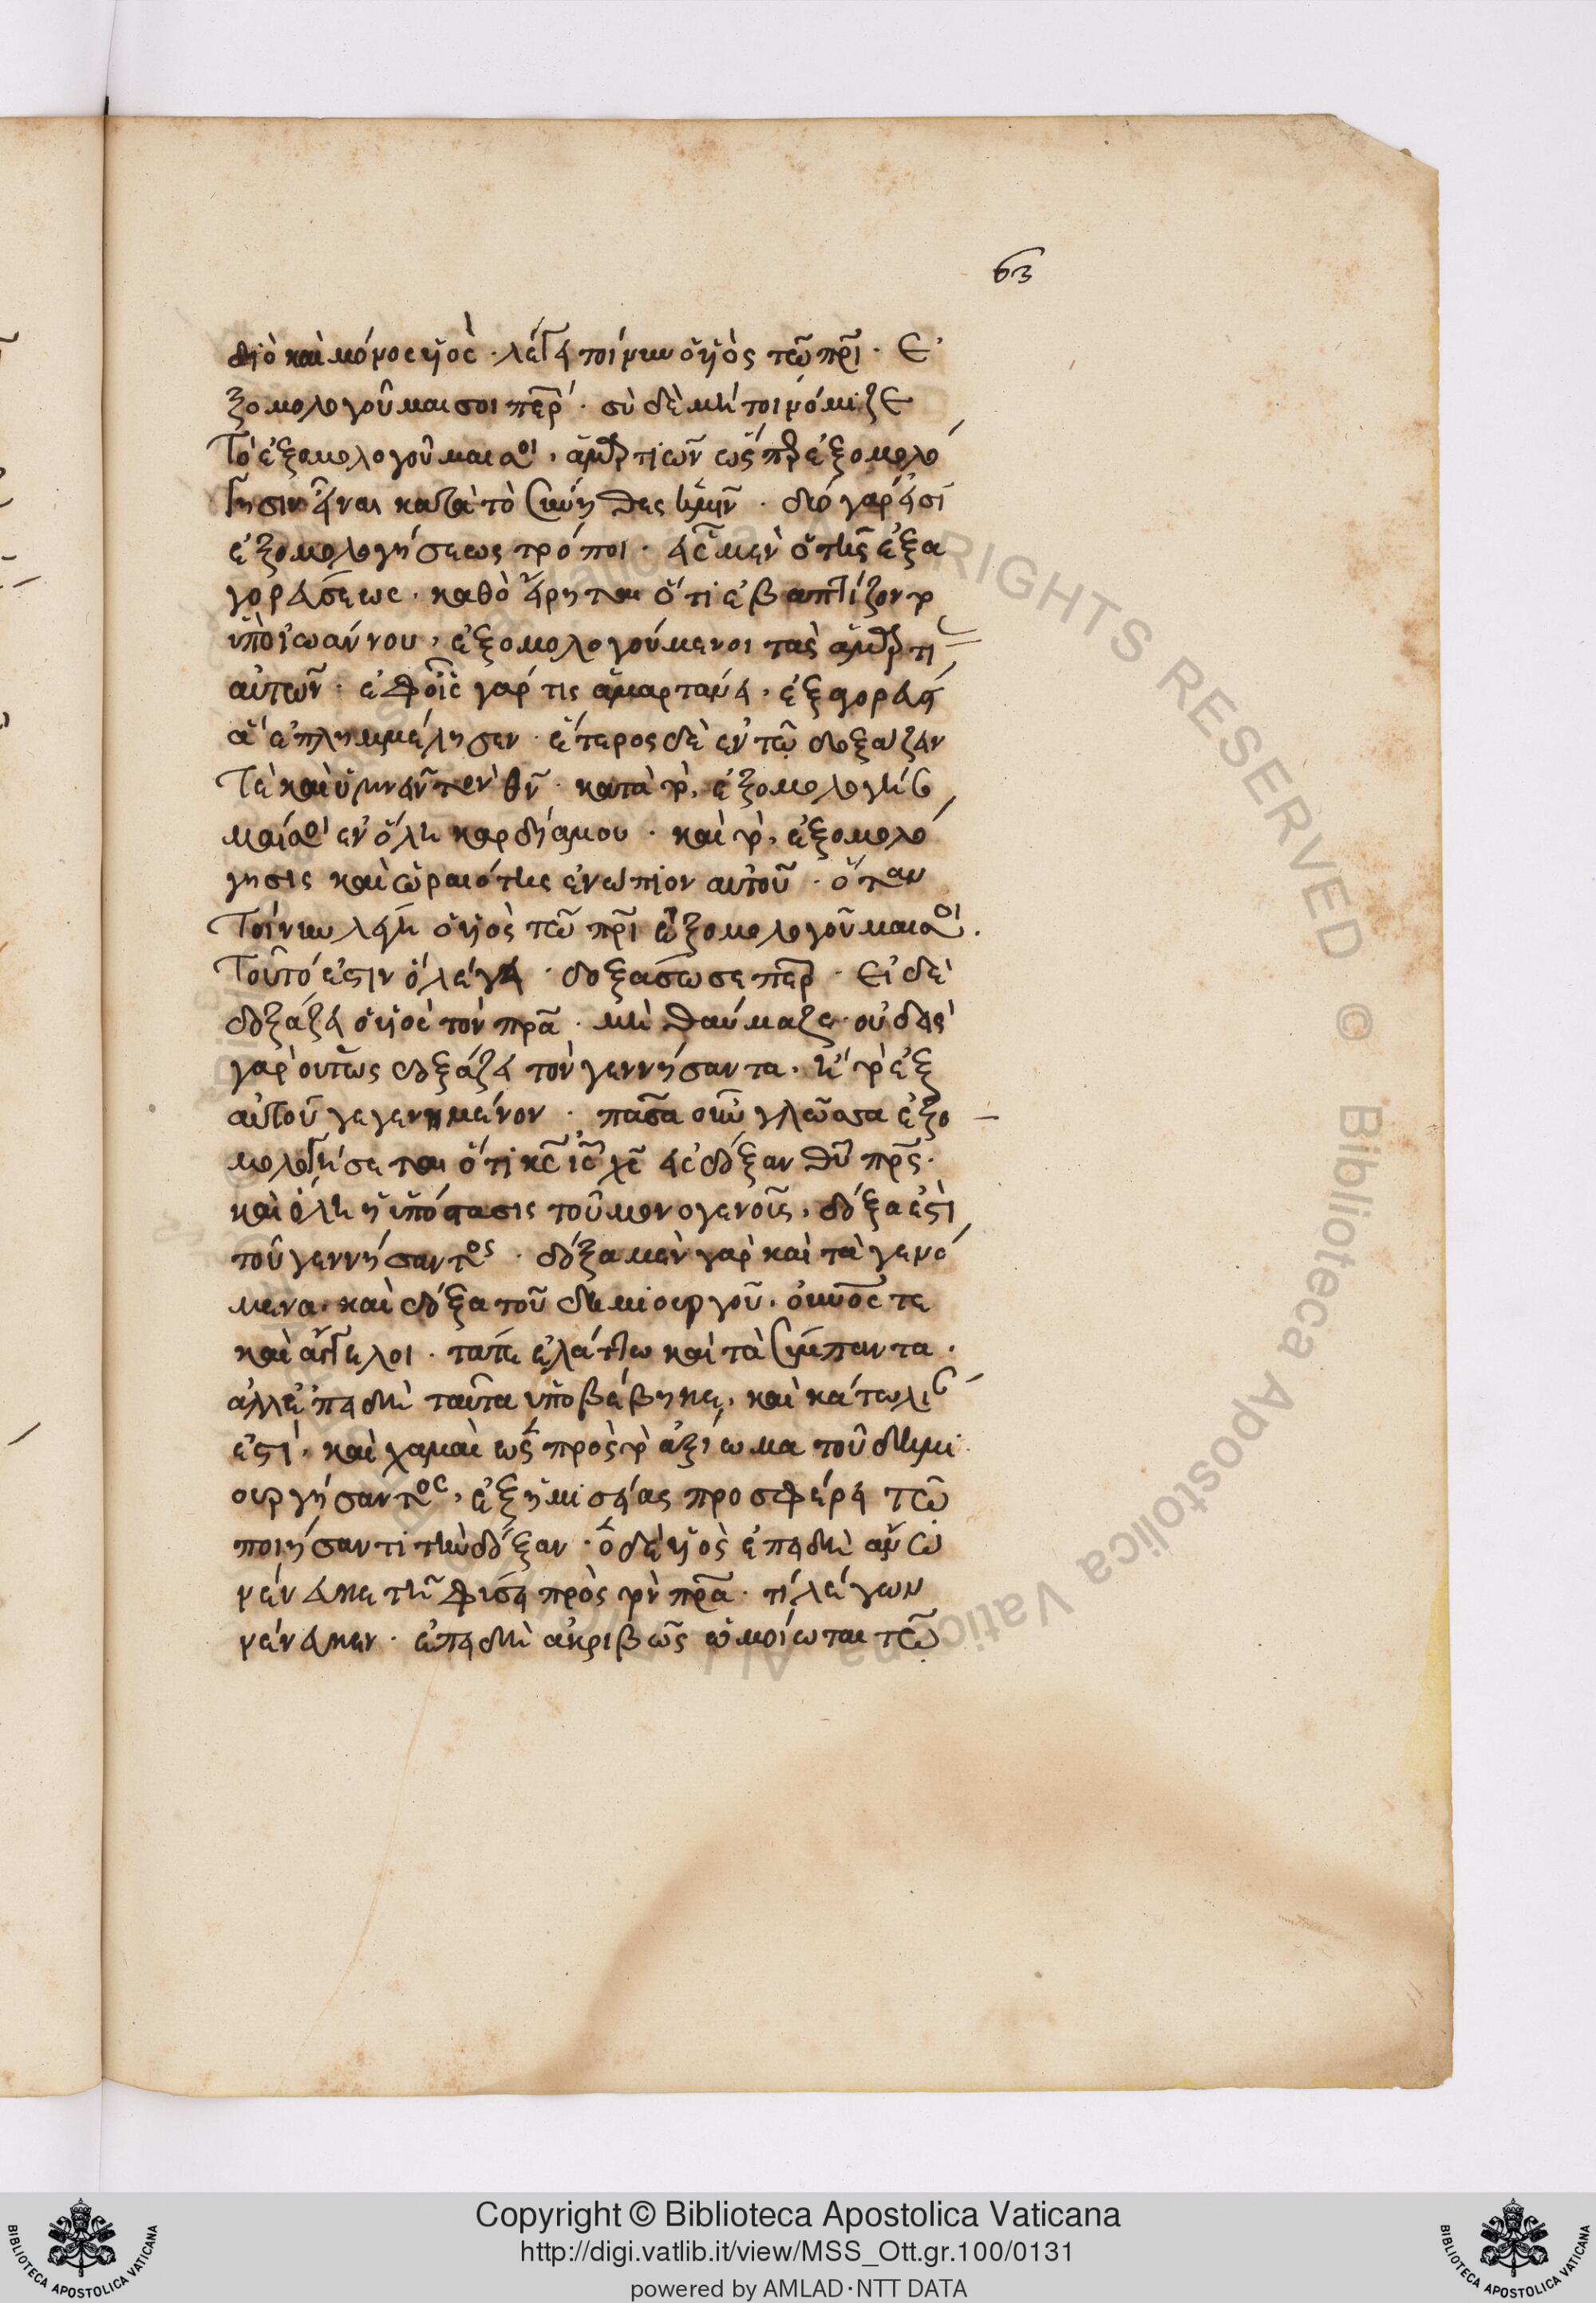 63
διὸ καὶ μόνος υἱός · λέγει τοίνυν ὁ υἱὸς τῶ πρι · Ἐ
ξομολογοῦμαι σοι περ · σὺ δὲ μή τοι νόμιζε
Τὸ ἐξομολογοῦμαι σοι, ἁμαρτιῶν ὥσπερ ἐξομολό
γησιν εἶναι κατὰ τὸ σύνηθες ἡμῖν · δύο γάρ εἰσι
ἐξομολογήσεως τρόποι · εἷς μὲν ὁ τῆς ἐξα
γορεύσεως · καθὸ εἴρηται ὅτι ἐβαπτίζοντο
ὑπὸ ἰωάννου, ἐξομολογούμενοι τὰς ἁμαρτί
αὐτῶν · ἐφ οἷς γάρ τις ἁμαρτάνει, ἐξαγορεύει
ἃ ἐπλημμέλησεν · ἕτερος δὲ ἐν τῶ δοξάζειν
Τὲ καὶ ὑμνεῖν τὸν θν · κατὰ τὸ, ἐξομολογήσ
μαί σοι ἐν ὅλη καρδίᾳ μου · καὶ τὸ, ἐξομολό
γησις καὶ ὡραιότης ἐνώπιον αὐτοῦ · ὅταν
Τοίνυν λέγη ὁ υἱὸς τῶ πρι ἐξομολογοῦμαι σοι.
Τοῦτό ἐστιν ὃ λέγει · δοξάσω σε περ · Εἰ δὲ
δοξάζει ὁ υἱὸς τὸν πρα · μὴ θαύμαζε · οὐδεὶς
γὰρ οὕτως δοξάζει τὸν γεννήσαντα, ἢ τὸ ἐξ
αὐτοῦ γεγενημένον · πᾶσα οὖν γλῶσσα ἐξο
μολογήσεται ὅτι κς ις χς εἰς δόξαν θυ πρς.
καὶ ὅλη ἡ ὑπόστασις τοῦ μονογενοῦς, δόξα ἐστὶ
τοῦ γεννήσαντος · δόξα μὲν γὰρ καὶ τὰ γενό
μενα, καὶ δόξα τοῦ δημιουργοῦ, οὐνός τε
καὶ ἄγγελοι · τά τε ἐλάττω καὶ τὰ σύμπαντα ·
ἀλλ ἐπειδὴ ταῦτα ὑποβέβηκε, καὶ κάτω λί
ἐστὶ, καὶ χαμαὶ ὡς πρὸς τὸ ἀξίωμα τοῦ δημι
ουργήσαντος, ἐξ ἡμισείας προσφέρει τῶ
ποιήσαντι τὴν δόξαν · ὁ δὲ υἱὸς ἐπειδὴ ἄνω
νένευκε τῆ φύσει πρὸς τὸν πρα · τί λέγων
νένευκεν · ἐπειδὴ ἀκριβῶς ὡμοίωται τῶ
Copyright © Biblioteca Apostolica Vaticana
http://digi.vatlib.it/view/MSS_Ott.gr.100/0131
powered by AMLAD·NTT DATA